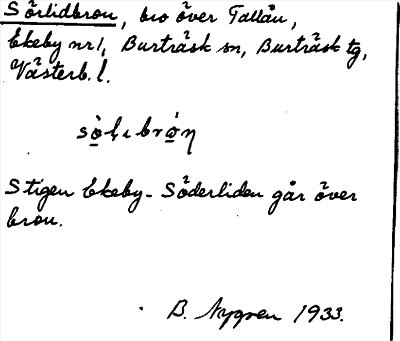 Sörlidbron, bro över Tallån,
Ekeby nr 1, Burträsk sn, Burträsk tg,
Västerb. l.
Stigen Ekeby - Söderliden går över
bron.
B. Nygren 1933.